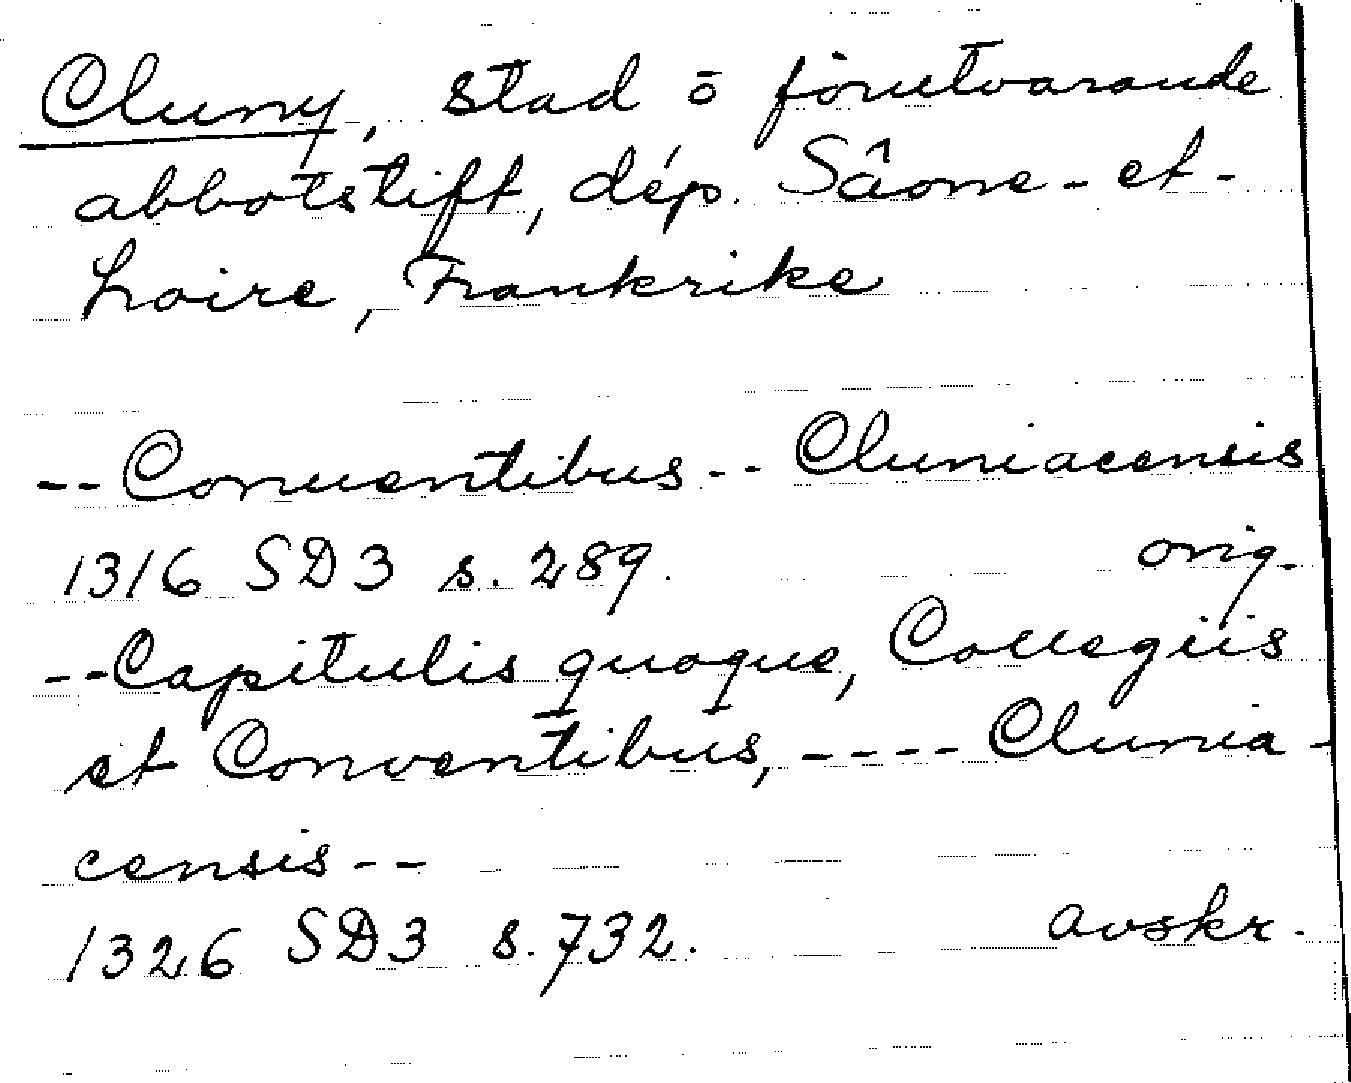 Cluny, stad ō förutvarande
abbotstift, dép. Sâone-et-
Loire, Frankrike
--Conuentibus-- Cluniacensis
1316 SD3 s. 289. orig.
--Capitulis quoque, Collegiis
et Conventibus, ---- Clunia-
censis--
1326 SD3 s. 732. avskr.